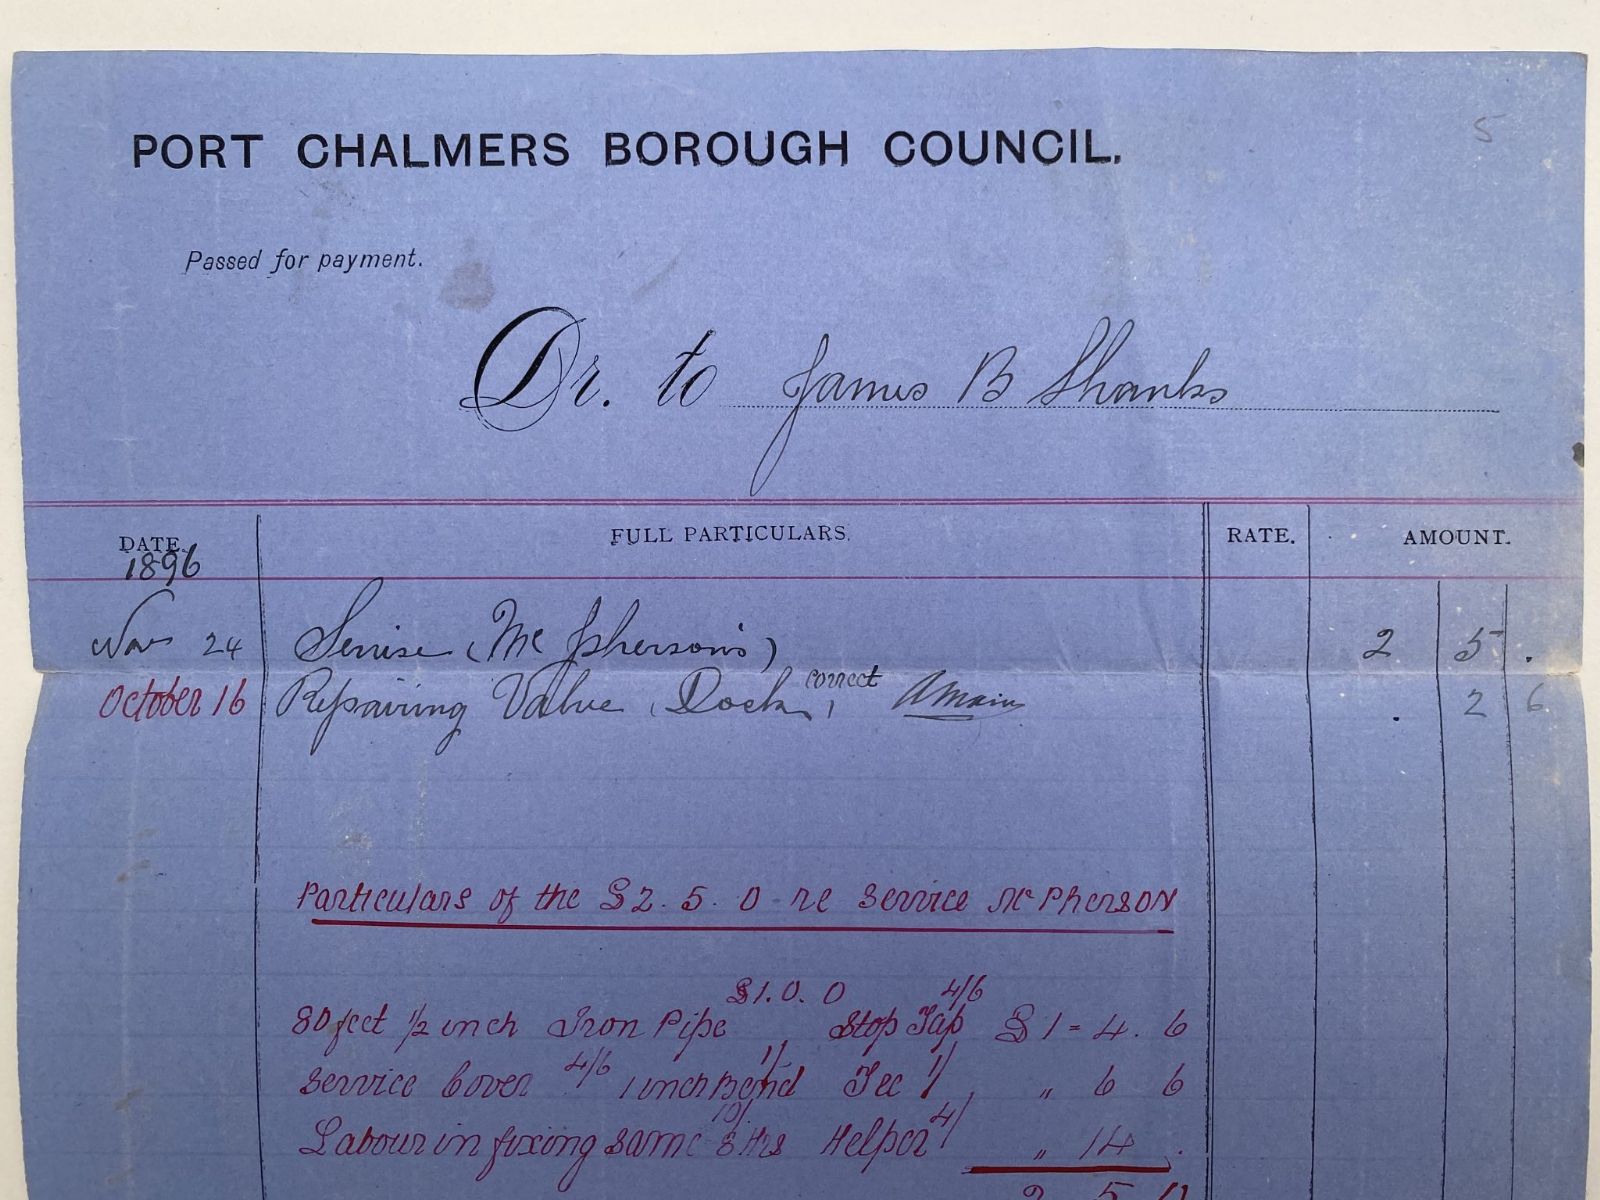 5
PORT CHALMERS BOROUGH COUNCIL.
Passed for payment.
Dr. to James B Shanks
DATE. FULL PARTICULARS. RATE. AMOUNT.
1896
Nov 24 Service (McPherson's) 2 5 .
October 16 Repairing Valve (Dock) correct AMain . 2 6
Particulars of the £2. 5. 0 re Service McPherson
£1. 0. 0 4/6
80 feet 1/2 inch Iron Pipe Stop Tap £1 = 4. 6
Service Cover 4/6 1 inch Bend 1/ Tee 1/ " 6 6
Labour in fixing same 8 Hrs 10/ Helper 4/ " 14 .
2 5 0